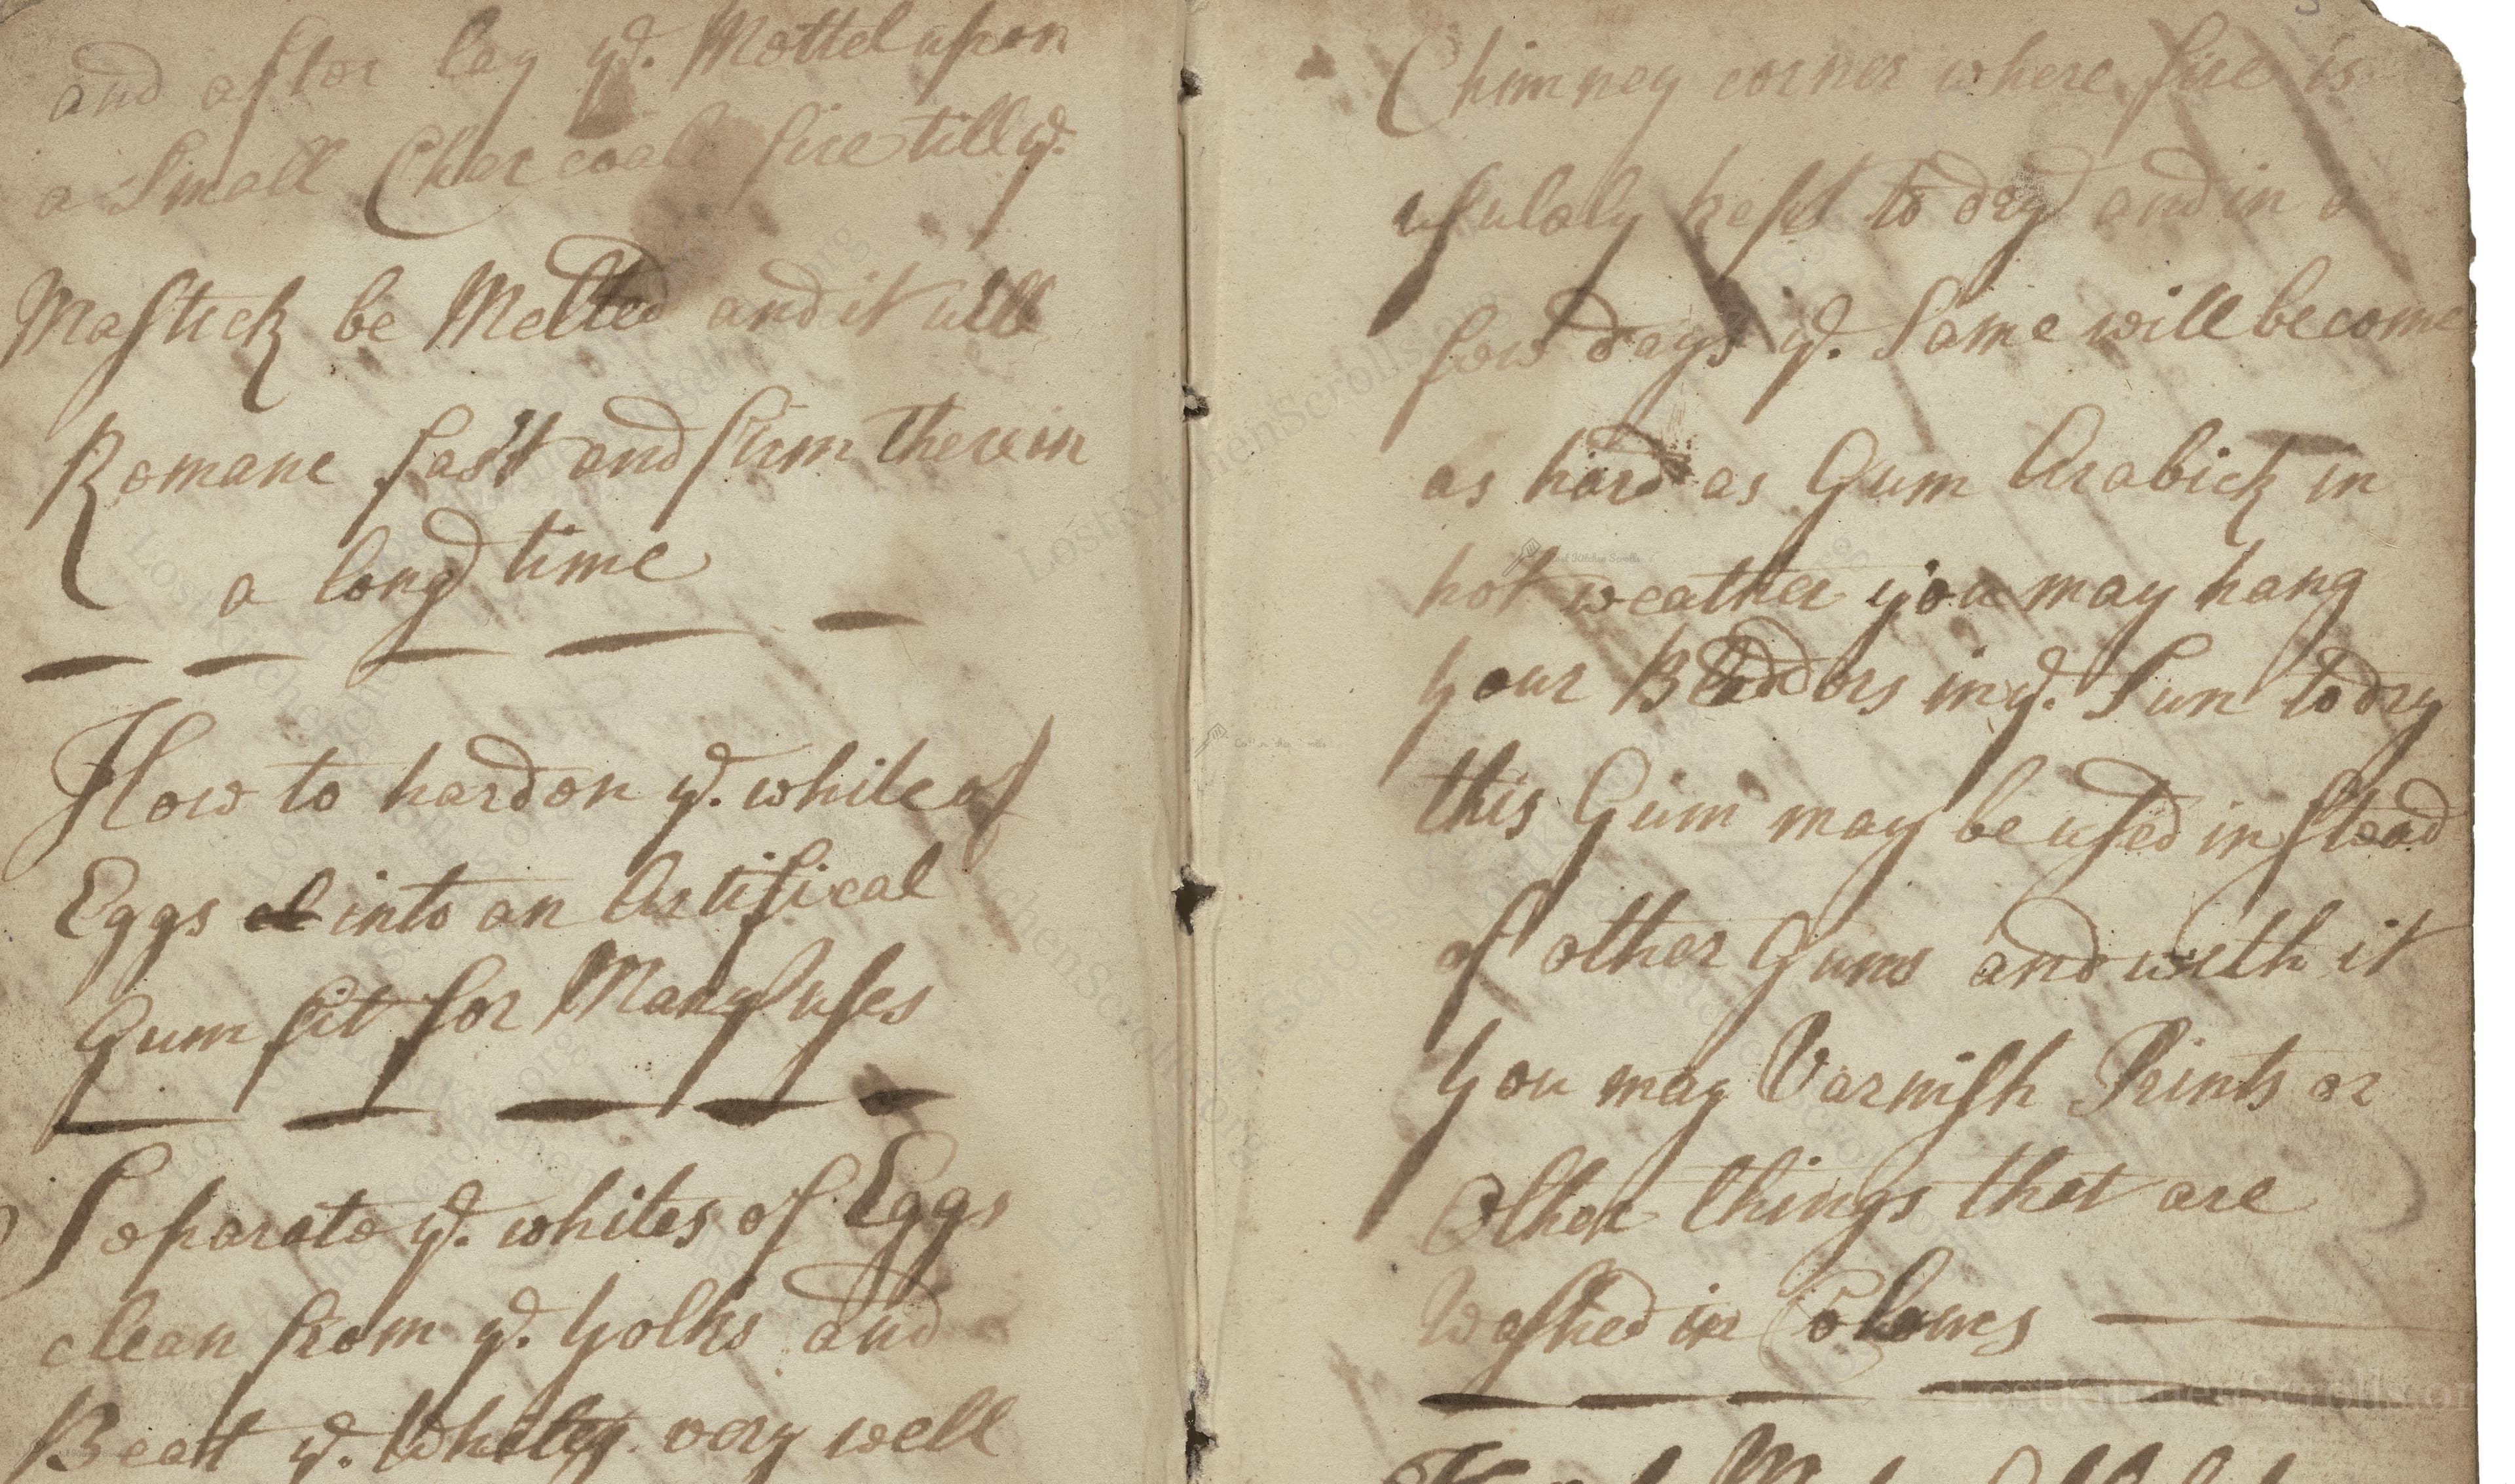 and after lay yͤ. Mettel upon
a Small Chercoale fire till yͤ.
Mastick be Melted and it will
Remane fast and firm therein
a long time
How to harden yͤ. white of
Eggs into an Artifical
Gum fit for Many uses
Seperate yͤ. whites of Eggs
clean from yͤ. yolks and
Beat yͤ. Whites very well
Chimney corner where fire is
usulaly kept to dry and in a
few days yͤ. Same will become
as hard as Gum Arabick in
hot weather you may hang
your Bladders in yͤ. Sun to dry
this Gum may be used in stead
of other Gums and with it
you may Varnish Prints or
Other things that are
Washed in Colowrs
LostKitchenScrolls.org